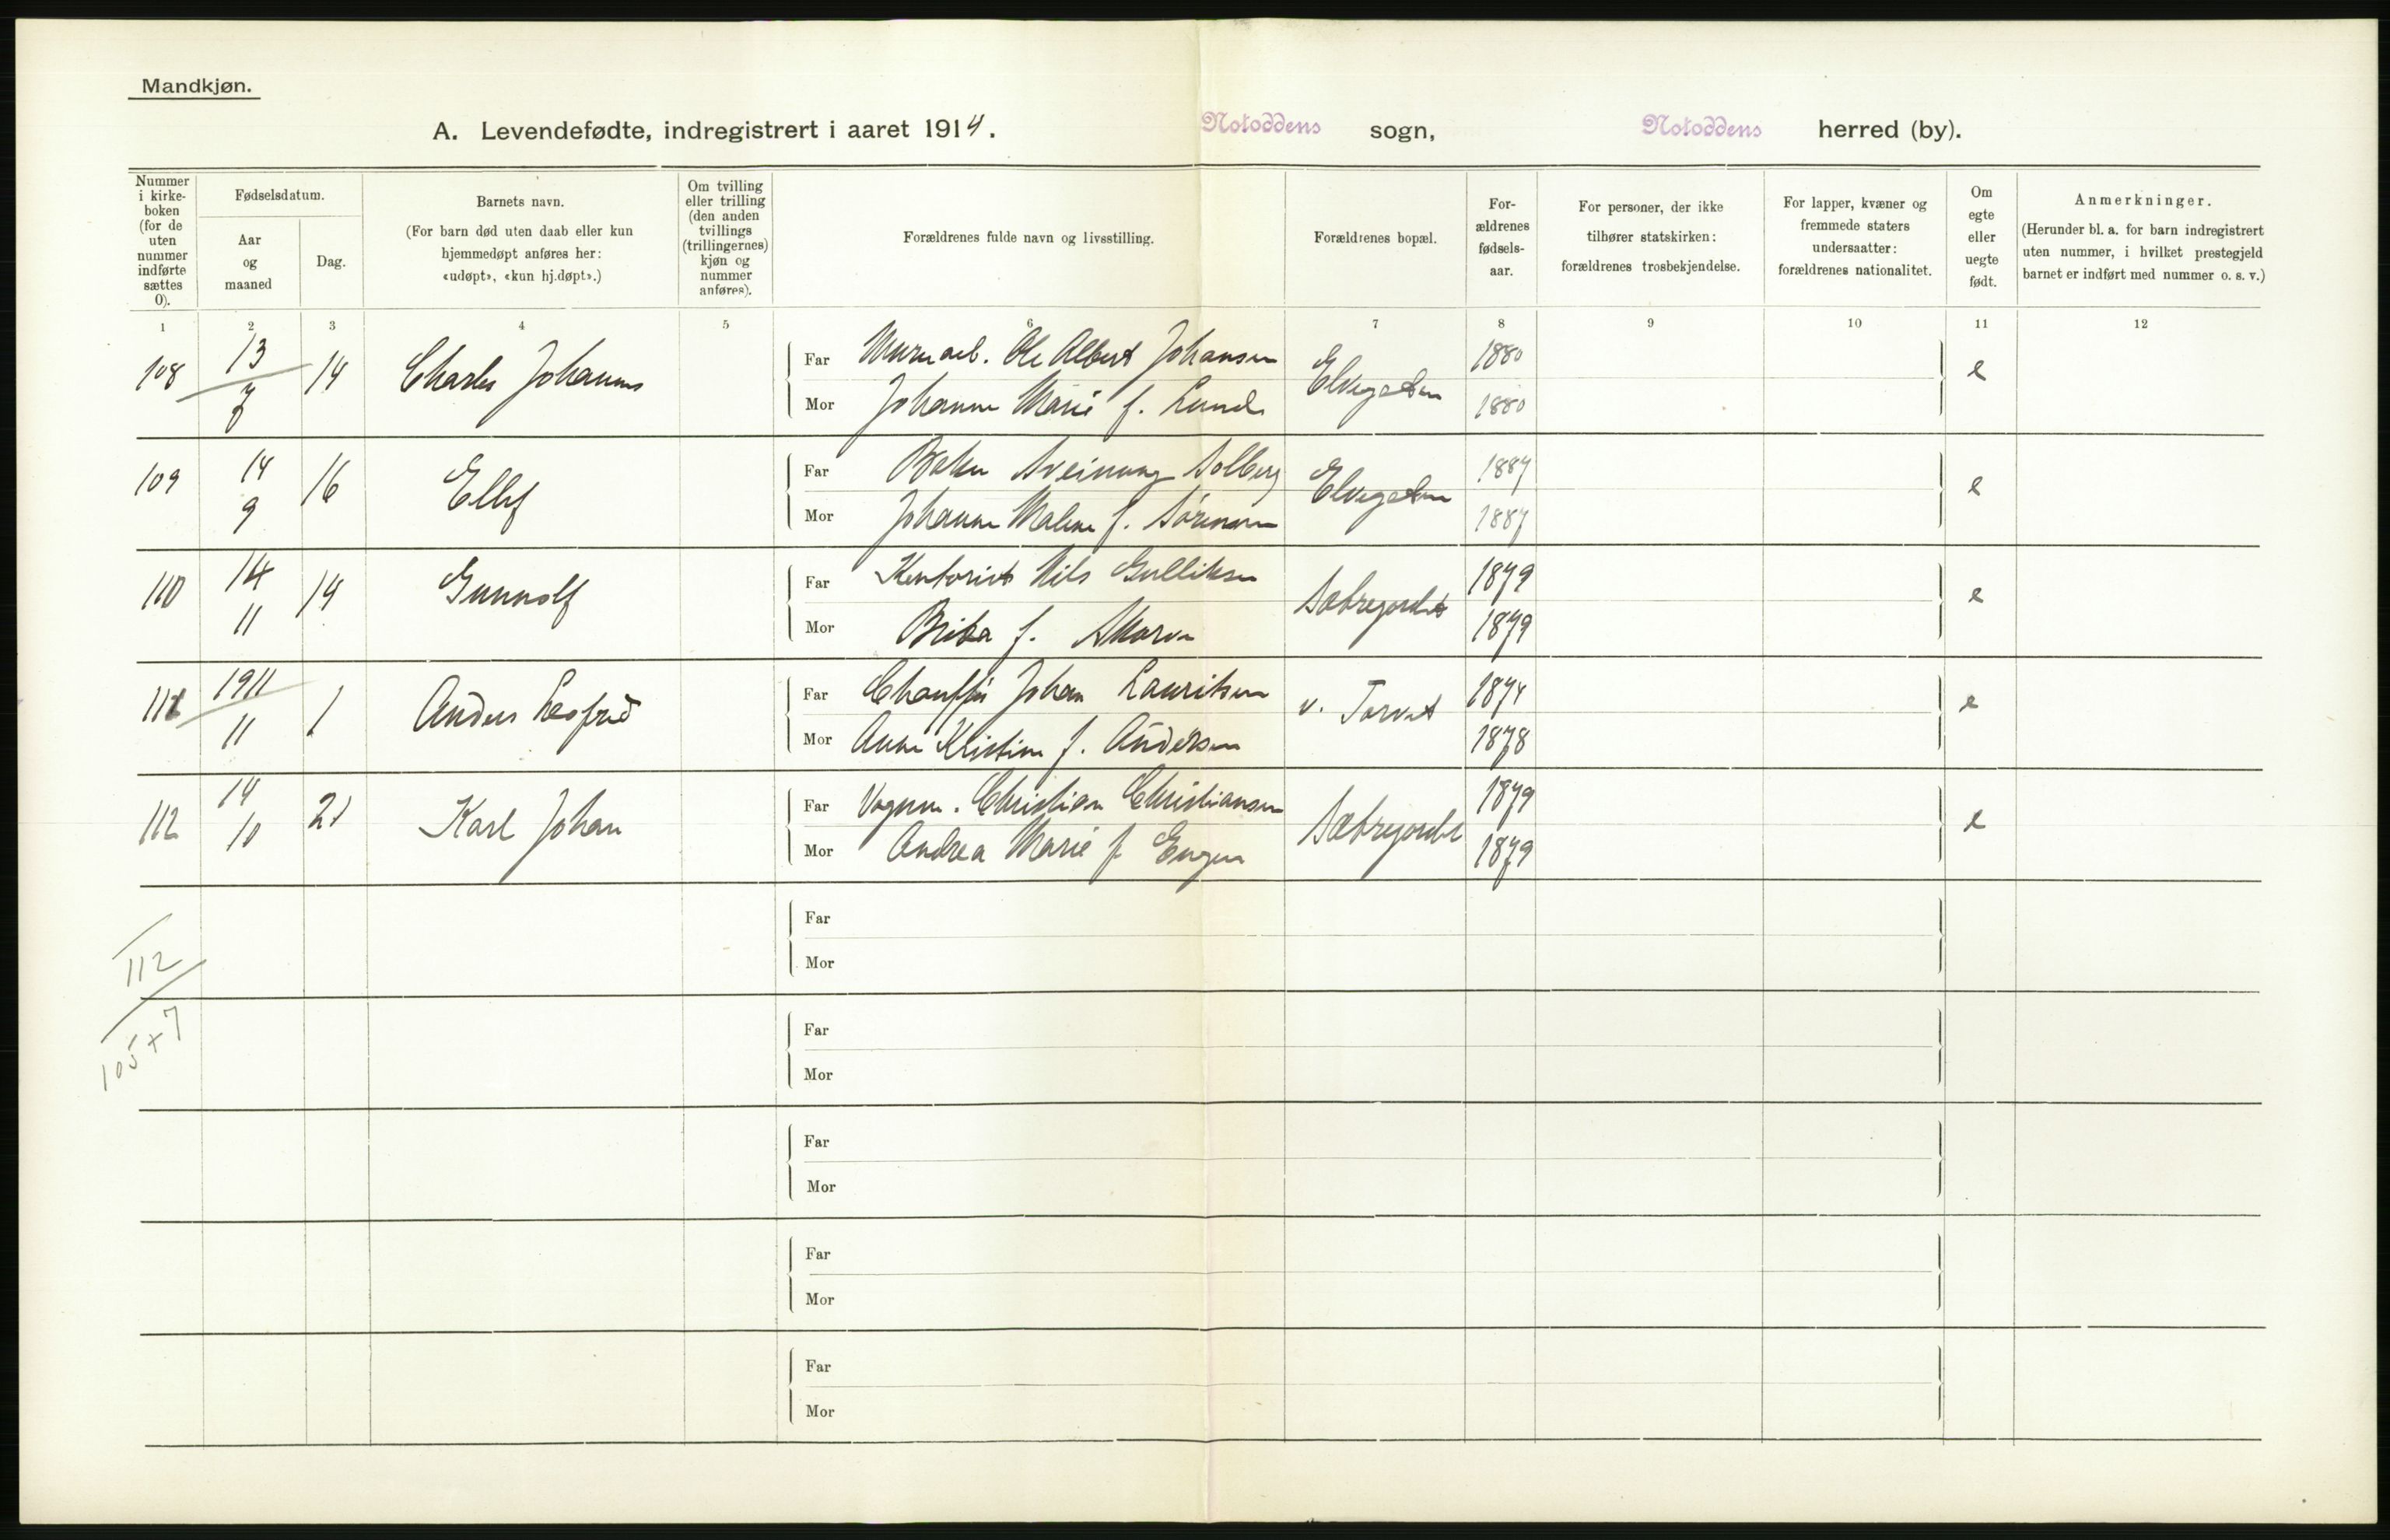 Mandkjøn.
A. Levendefødte, indregistrert i aaret 1914. Notoddens sogn, Notoddens herred (by).
Nummer i kirke-boken (for de uten nummer indførte sættes 0).
Fødselsdatum.
Aar og maaned
Dag.
Barnets navn.
(For barn død uten daab eller kun hjemmedøpt anføres her: «udøpt», «kun hj.døpt».)
Om tvilling eller trilling (den anden tvillings (trillingernes) kjøn og nummer anføres).
Forældrenes fulde navn og livsstilling.
Forældrenes bopæl.
For-ældrenes fødsels-aar.
For personer, der ikke tilhører statskirken: forældrenes trosbekjendelse.
For lapper, kvæner og fremmede staters undersaatter: forældrenes nationalitet.
Om egte eller uegte født.
Anmerkninger.
(Herunder bl. a. for barn indregistrert uten nummer, i hvilket prestegjeld barnet er indført med nummer o. s. v.)
1 2 3 4 5 6 7 8 9 10 11 12
108 13/7 14 Charles Johannes Far Murearb. Ole Albert Johansen Elvegaten 1880 e
Mor Johanne Marie f. Lund 1880
109 14 9 16 Ellef Far Baker Sveinung Solberg Elvegaten 1887 e
Mor Johanne Malene f. Sørensen 1887
110 14 11 14 Gunnolf Far Kontorist Nils Gulliksen Sætrejordet 1879 e
Mor Birta f. 1879
111 1911 11 1 Anders Leofred Far Chauffør Johan Lauritsen v. Torvet 1874 e
Mor Anne Kristine f. Andersen 1878
112 14 10 21 Karl Johan Far Vognm. Christian Christiansen Sætrejordet 1879 e
Mor Andrea Marie f. 1879
Far
Mor
112
105+7
Far
Mor
Far
Mor
Far
Mor
Far
Mor